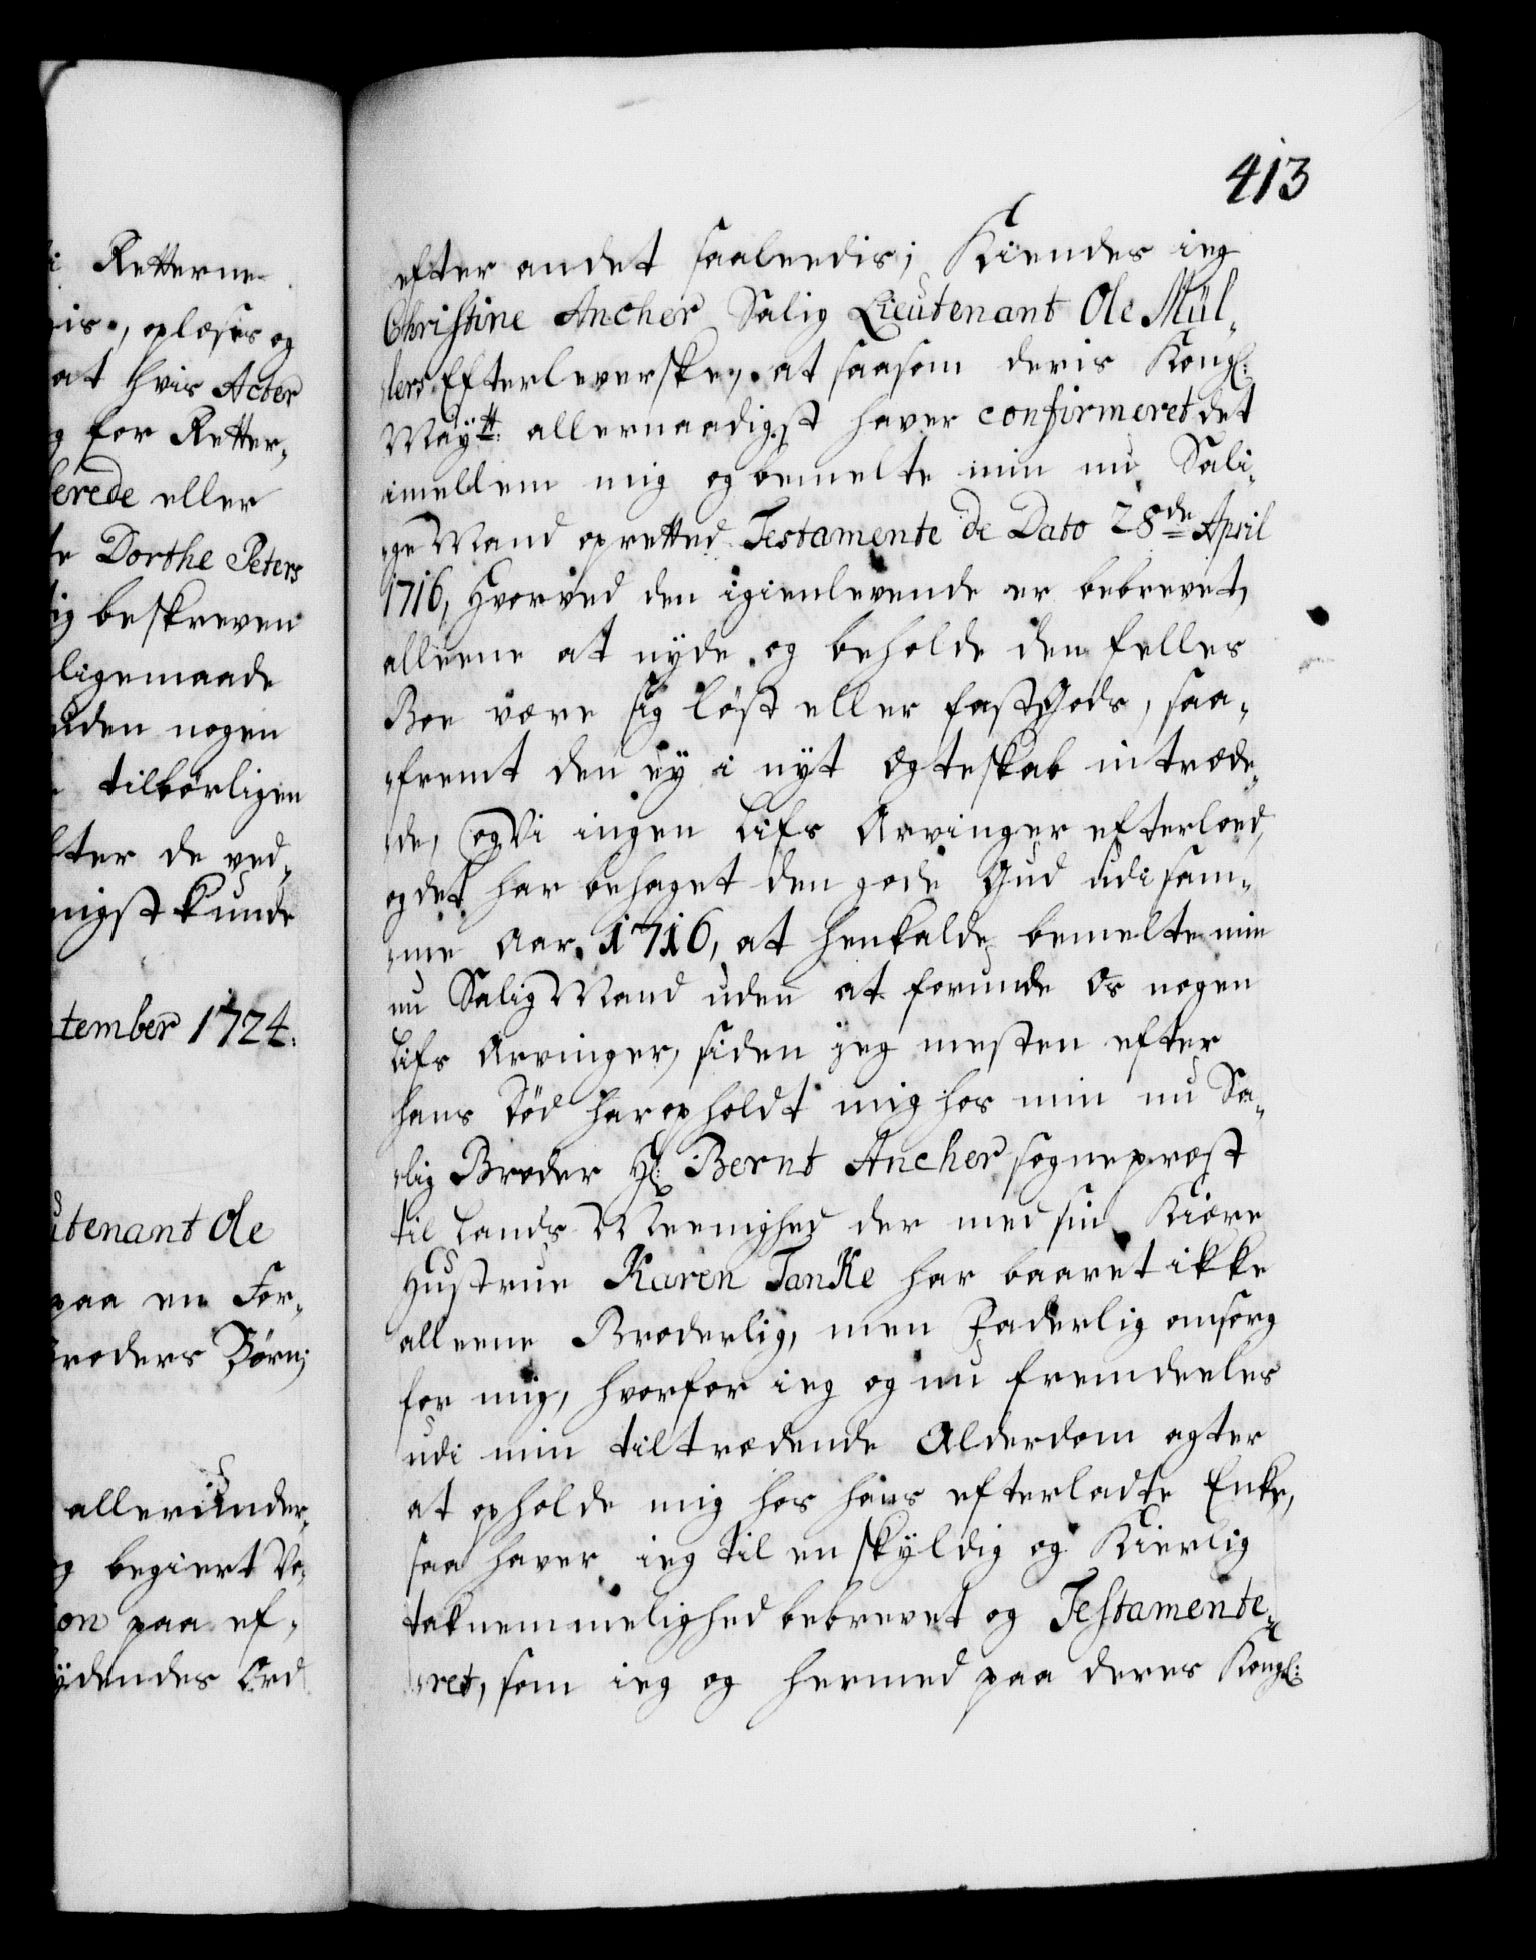 i Retterne
is, oplæses og
at hvis Acter
g for Retter,
erede eller
te Dorthe Peters
ig beskreven
ligemaade
uden nogen
tilbørligen
fter de ved,
nigst kunde
tember 1724.
utenant Ole
paa en For,
Broders Børn;
allerunder,
g begiert Vo,
on paa ef,
ydendes Ord
413
efter andet saaleedis; Kiendes ieg
Christine Ancher Salig Lieutenant Ole Mül,
lers Efterleverske, at saasom deris Kongl:
Mayᵗᵗ: allernaadigst haver confirmeret det
imellem mig og bemelte min nu Sali,
ge Mand opretted Testamente de Dato 28de April
1716, Hvorved den igienlevende er bebrevet,
alleene at nyde og beholde den felles
Boe være sig løst eller fast Gods, saa,
fremt den ey i nyt Ægteskab intræde,
de, og Vi ingen Lifs Arvinger efterloed,
og det har behaget den gode Gud udi sam,
me Aar 1716, at henkalde bemelte min
nu Salig Mand uden at forunde Os nogen
Lifs Arvinger, siden jeg mesten efter
hans Død har opholdt mig hos min nu Sa,
lig Broder Hl: Bernt Ancher sogneprest
til Lands Meenighed der med sin Kiære
Hustrue Karen Tanke har baaret ikke
alleene Broderlig, men Faderlig omsorg
for mig, hvorfor ieg og nu fremdeeles
udi min tiltrædende Alderdom agter
at opholde mig hos hans efterladte Enke,
saa haver ieg til en skyldig og Kierlig
taknemmelighed bebrevet og Testamente,
ret, som ieg og hermed paa deres Kongl: